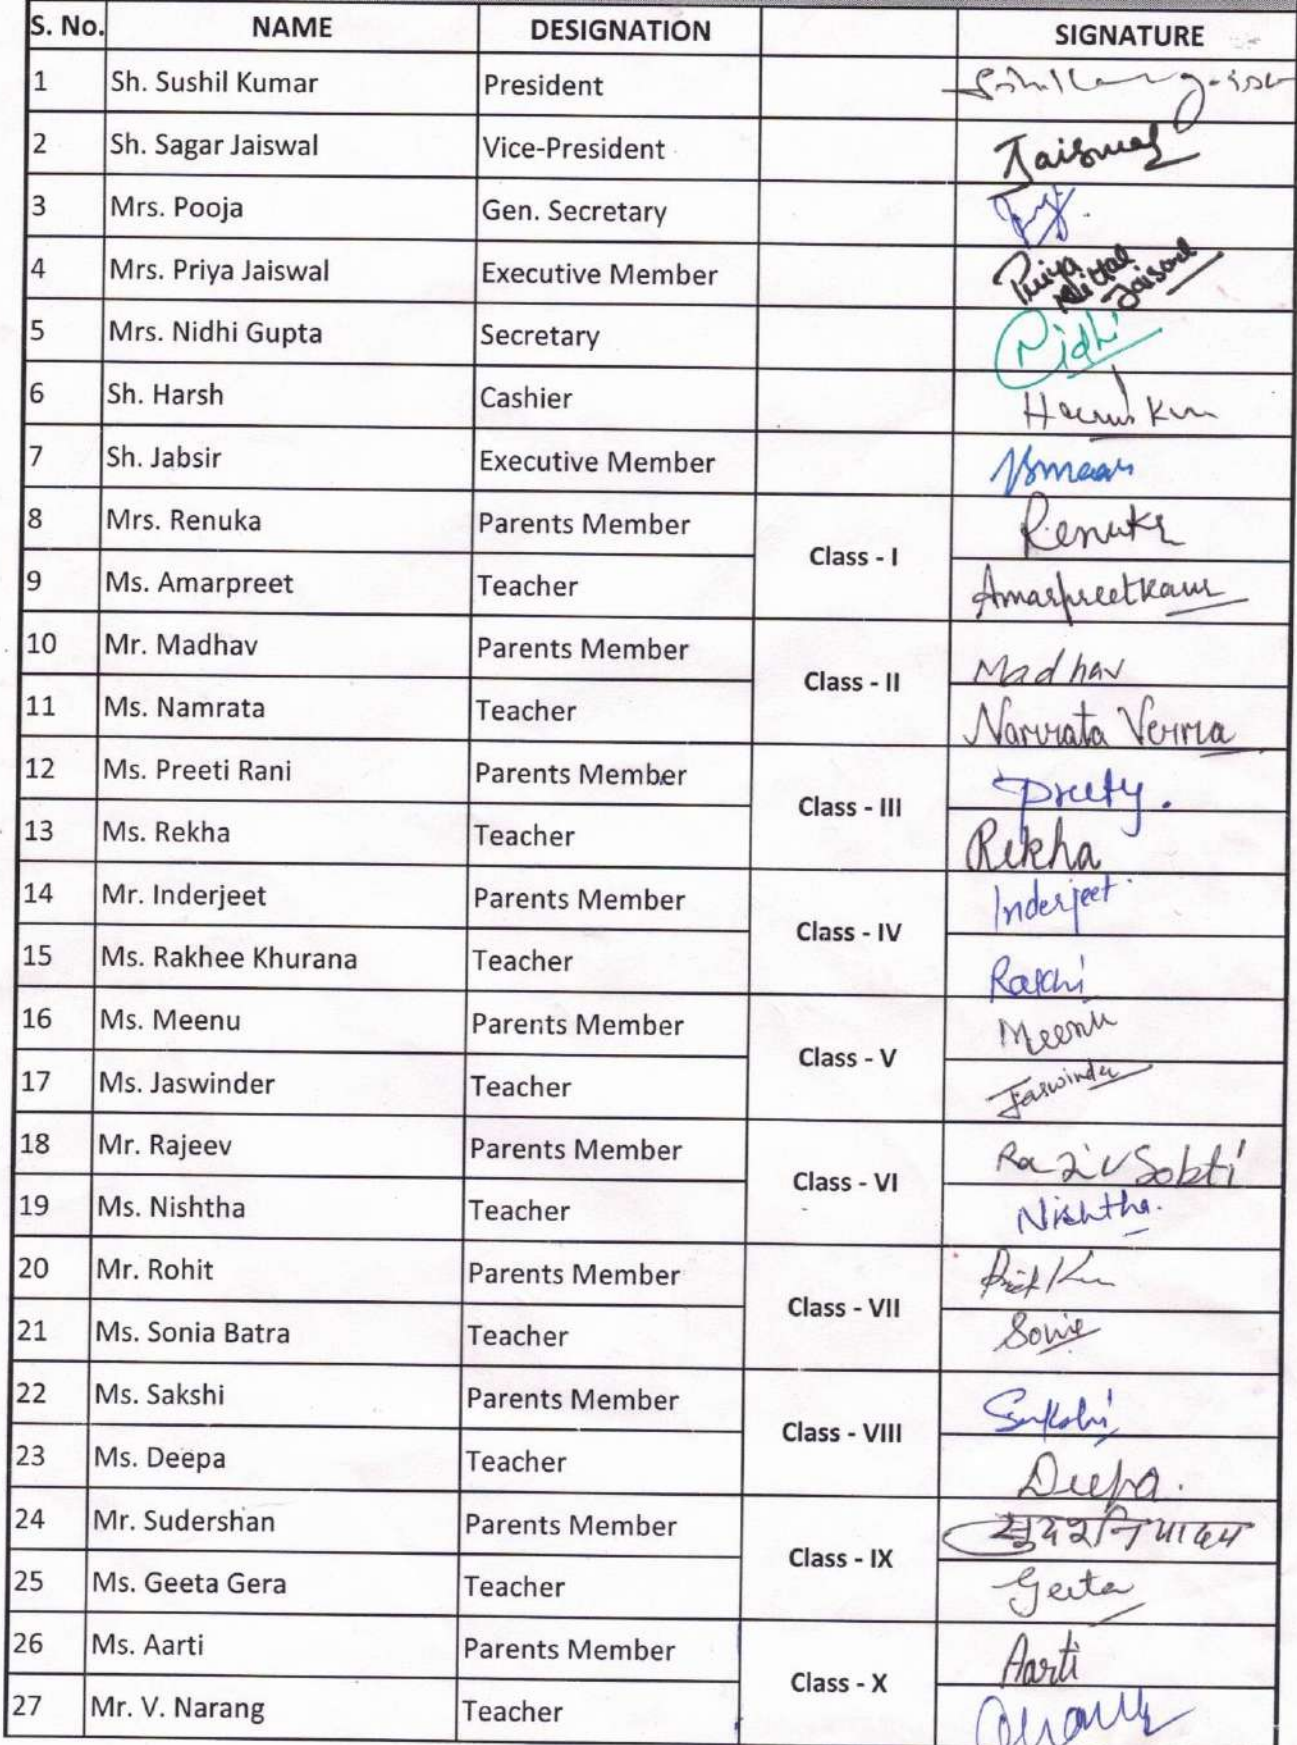 S. No. NAME DESIGNATION SIGNATURE
1 Sh. Sushil Kumar President
2 Sh. Sagar Jaiswal Vice-President Jaiswal
3 Mrs. Pooja Gen. Secretary
4 Mrs. Priya Jaiswal Executive Member Priya Mittal Jaiswal
5 Mrs. Nidhi Gupta Secretary Nidhi
6 Sh. Harsh Cashier
7 Sh. Jabsir Executive Member
8 Mrs. Renuka Parents Member Class - I Renuka
9 Ms. Amarpreet Teacher Amarpreet Kaur
10 Mr. Madhav Parents Member Class - II Madhav
11 Ms. Namrata Teacher Namrata Verma
12 Ms. Preeti Rani Parents Member Class - III Preety.
13 Ms. Rekha Teacher Rekha
14 Mr. Inderjeet Parents Member Class - IV Inderjeet
15 Ms. Rakhee Khurana Teacher Rakhi
16 Ms. Meenu Parents Member Class - V Meenu
17 Ms. Jaswinder Teacher Jaswinder
18 Mr. Rajeev Parents Member Class - VI Raziv Sobti
19 Ms. Nishtha Teacher Nishtha.
20 Mr. Rohit Parents Member Class - VII
21 Ms. Sonia Batra Teacher Sonia
22 Ms. Sakshi Parents Member Class - VIII Sakshi
23 Ms. Deepa Teacher Deepa.
24 Mr. Sudershan Parents Member Class - IX
25 Ms. Geeta Gera Teacher Geeta
26 Ms. Aarti Parents Member Class - X Aarti
27 Mr. V. Narang Teacher